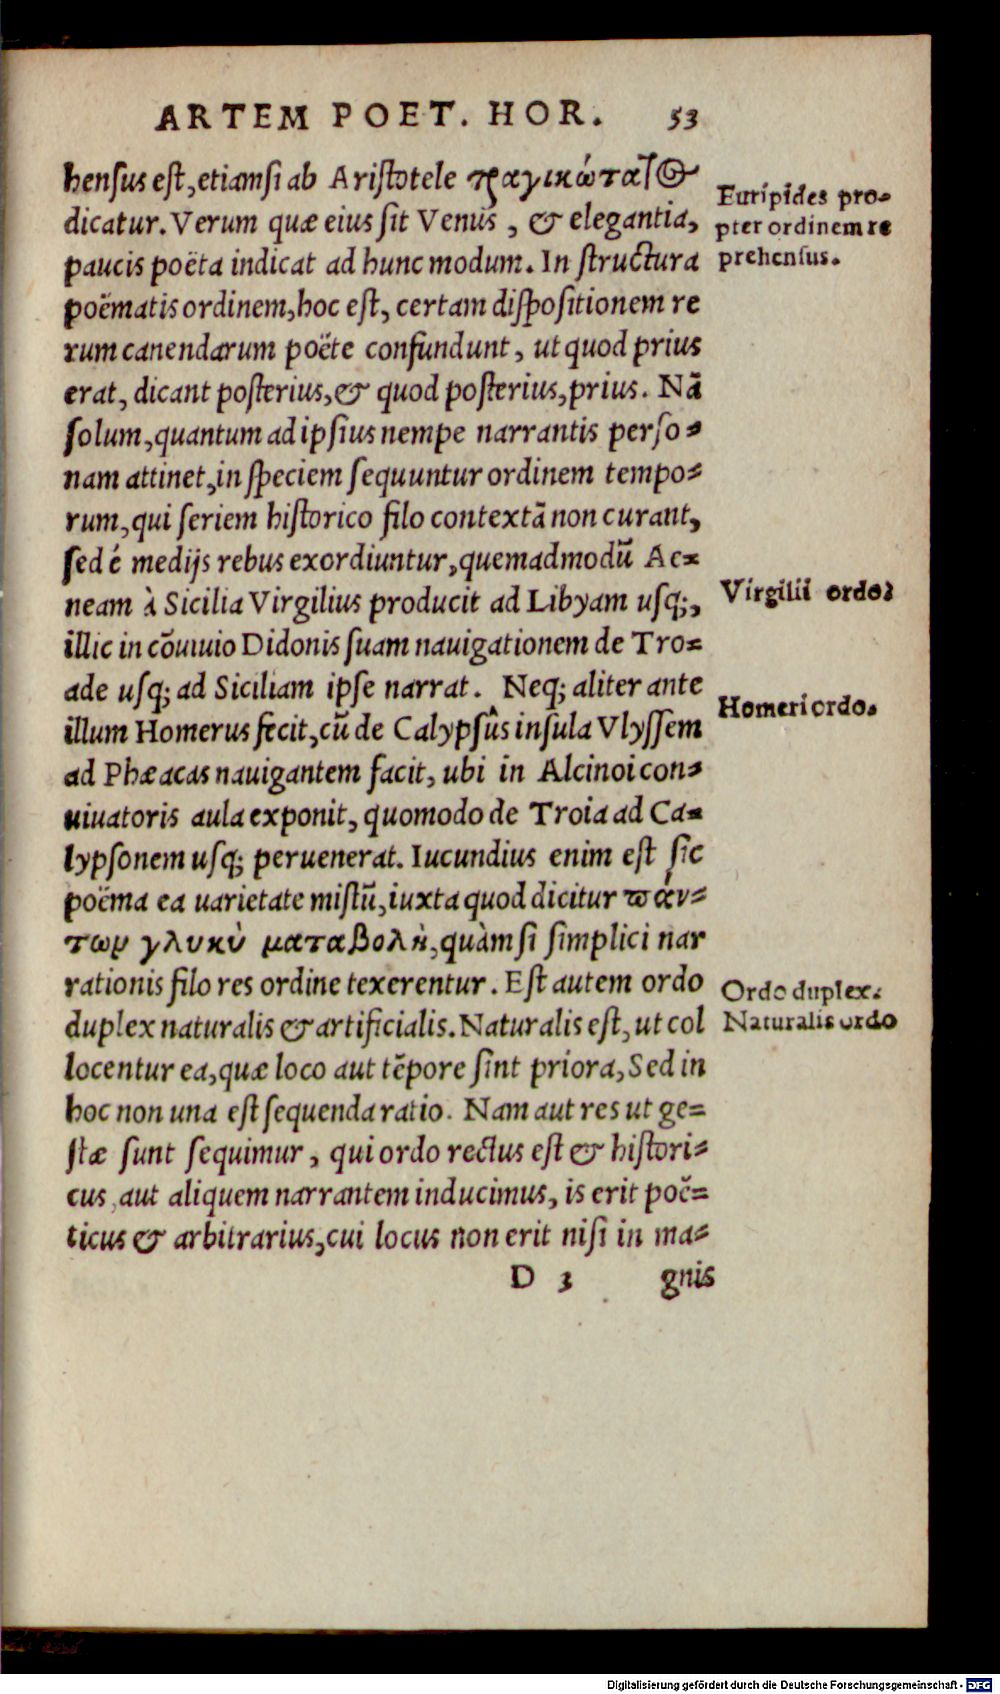 ARTEM POET. HOR. 53
hensus est, etiamsi ab Aristotele τραγικώτατος
dicatur. Verum quæ eius sit Venus, & elegantia,
paucis poëta indicat ad hunc modum. In structura
poëmatis ordinem, hoc est, certam dispositionem re
rum canendarum poëte confundunt, ut quod prius
erat, dicant posterius, & quod posterius, prius. Nā
solum, quantum ad ipsius nempe narrantis perso-
nam attinet, in speciem sequuntur ordinem tempo-
rum, qui seriem historico filo contextā non curant,
sed é medijs rebus exordiuntur, quemadmodū Ae-
neam à Sicilia Virgilius producit ad Libyam usq;,
illic in cōuiuio Didonis suam nauigationem de Tro-
ade usq; ad Siciliam ipse narrat. Neq; aliter ante
illum Homerus fecit, cū de Calypsûs insula Vlyssem
ad Phæacas nauigantem facit, ubi in Alcinoi con-
uiuatoris aula exponit, quomodo de Troia ad Ca-
lypsonem usq; peruenerat. Iucundius enim est sic
poëma ea uarietate mistū, iuxta quod dicitur πάν-
των γλυκὺ ματαβολὴ, quàm si simplici nar
rationis filo res ordine texerentur. Est autem ordo
duplex naturalis & artificialis. Naturalis est, ut col
locentur ea, quæ loco aut tēpore sint priora, Sed in
hoc non una est sequenda ratio. Nam aut res ut ge-
stæ sunt sequimur, qui ordo rectus est & histori-
cus, aut aliquem narrantem inducimus, is erit poë-
ticus & arbitrarius, cui locus non erit nisi in ma-
D 3 gnis
Euripides pro-
pter ordinem re
prehensus.
Virgilii ordo.
Homeri ordo.
Ordo duplex.
Naturalis ordo
Digitalisierung gefördert durch die Deutsche Forschungsgemeinschaft - DFG